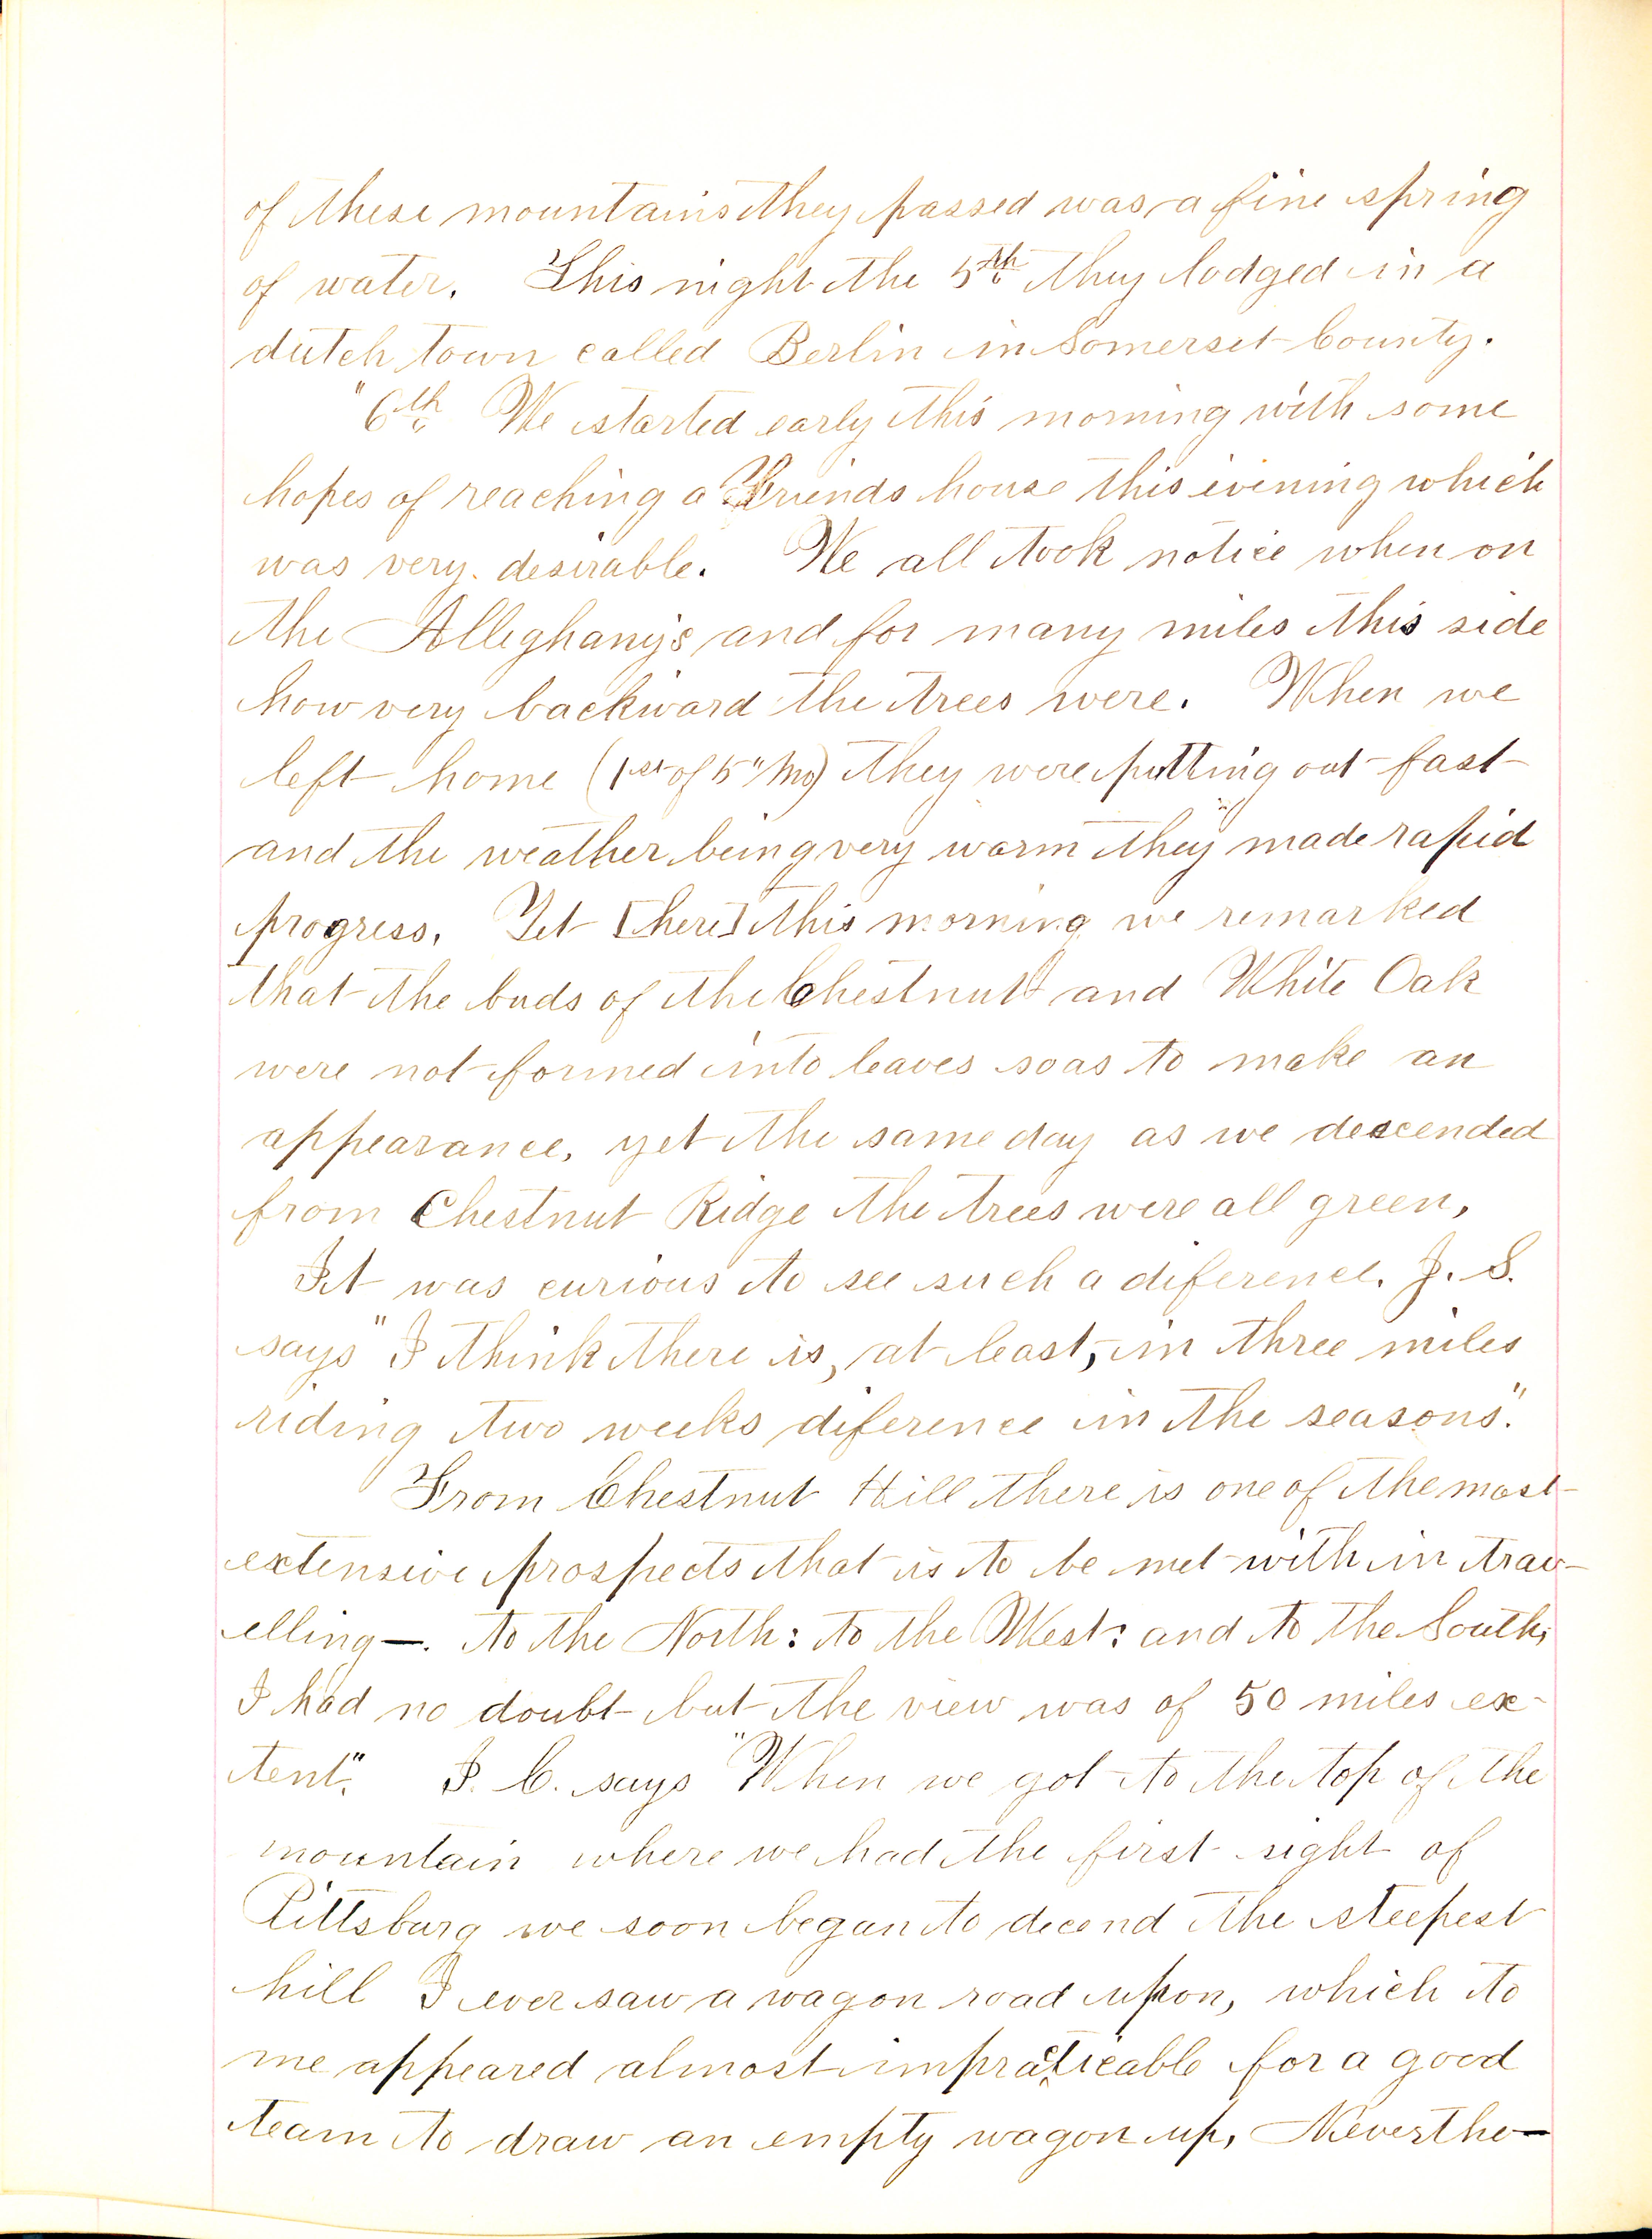 of these mountains they passed was a fine spring
of water. This night the 5th they lodged in a
dutch town called Berlin in Somerset County.
"6th We started early this morning with some
hopes of reaching a Friends house this evening which
was very desirable. We all took notice when on
the Alleghanys and for many miles this side
how very backward the trees were. When we
left home (1st of 5" Mo) they were putting out fast
and the weather being very warm they made rapid
progress. Yet [here] this morning we remarked
that the buds of the Chestnut and White Oak
were not formed into leaves so as to make an
appearance, yet the same day as we descended
from Chestnut Ridge the trees were all green,
It was curious to see such a diference. J. S.
says "I think there is, at least, in three miles
riding two weeks diference in the seasons".
From Chestnut Hill there is one of the most
extensive prospects that is to be met with in trav-
elling—. to the North: to the West: and to the South;
I had no doubt but the view was of 50 miles ex-
tent". I. C. says "When we got to the top of the
mountain where we had the first sight of
Pittsburg we soon began to decend the steepest
hill I ever saw a wagon road upon, which to
me appeared almost impracticable for a good
team to draw an empty wagon up, Neverthe—